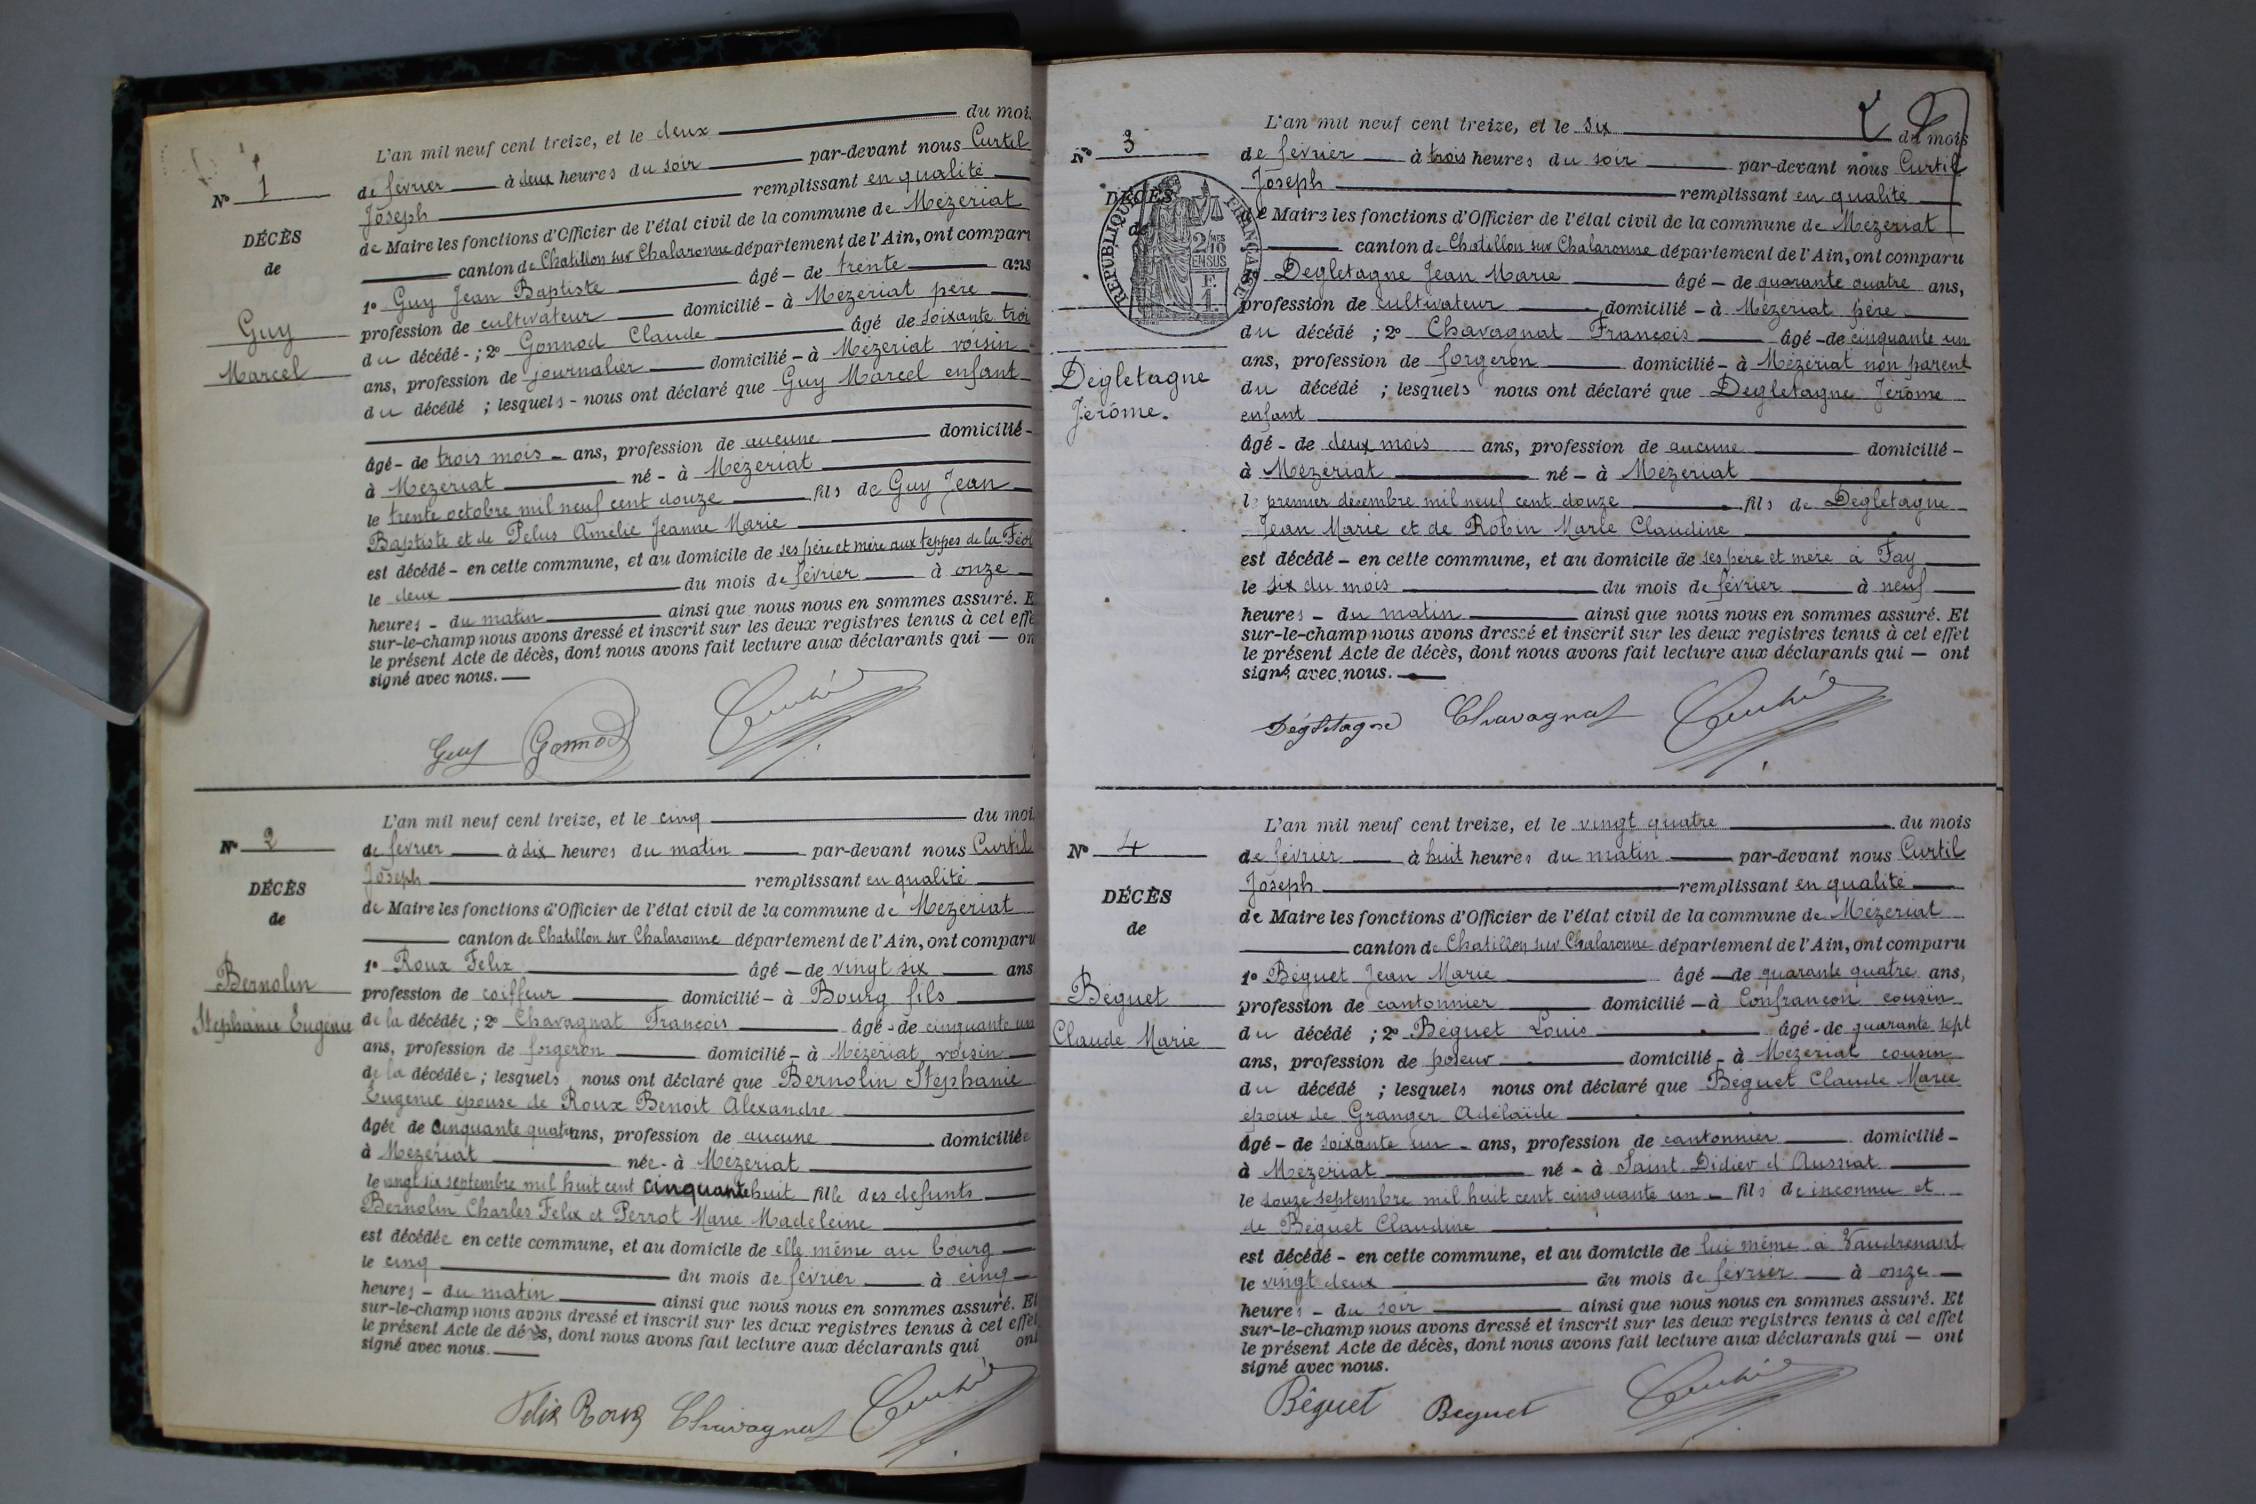 N° 1
DÉCÈS
de
Guy
Marcel
L'an mil neuf cent treize, et le deux du moi
de février à deux heures du soir par-devant nous Curtil
Joseph remplissant en qualité
de Maire les fonctions d'Officier de l'état civil de la commune de Mézériat
canton de Chatillon sur Chalaronne département de l'Ain, ont compar
1° Guy Jean Baptiste âgé - de trente ans
profession de cultivateur domicilié - à Mézériat père
du décédé - ; 2° Gonnod Claude âgé de soixante troi
ans, profession de journalier domicilié - à Mézériat voisin
du décédé ; lesquels - nous ont déclaré que Guy Marcel enfant
âgé - de trois mois - ans, profession de aucune domicilié -
à Mézériat né - à Mézériat
le trente octobre mil neuf cent douze fils de Guy Jean
Baptiste et de Pelus Amélie Jeanne Marie
est décédé - en cette commune, et au domicile de ses père et mère aux teppes de la
le deux du mois de février à onze
heures - du matin ainsi que nous nous en sommes assuré. E
sur-le-champ nous avons dressé et inscrit sur les deux registres tenus à cet effe
le présent Acte de décès, dont nous avons fait lecture aux déclarants qui — on
signé avec nous. —
Guy Gonnod
N° 2
DÉCÈS
de
Bernolin
Stéphanie Eugénie
L'an mil neuf cent treize, et le cinq du moi
de février à dix heures du matin par-devant nous Curtil
Joseph remplissant en qualité
de Maire les fonctions d'Officier de l'état civil de la commune de Mézériat
canton de Chatillon sur Chalaronne département de l'Ain, ont comparu
1° Roux Felix âgé — de vingt six ans
profession de coiffeur domicilié - à Bourg fils
de la décédée ; 2° Chavagnat François âgé - de cinquante un
ans, profession de forgeron domicilié - à Mézériat voisin
de la décédée ; lesquels nous ont déclaré que Bernolin Stéphanie
Eugénie épouse de Roux Benoit Alexandre
âgée de cinquante quatre ans, profession de aucune domiciliée
à Mézériat née - à Mézériat
le vingt six septembre mil huit cent cinquante huit fille des defunts
Bernolin Charles Felix et Perrot Marie Madeleine
est décédée en cette commune, et au domicile de elle même au bourg
le cinq du mois de février à cinq
heures - du matin ainsi que nous nous en sommes assuré. Et
sur-le-champ nous avons dressé et inscrit sur les deux registres tenus à cet effet
le présent Acte de décès, dont nous avons fait lecture aux déclarants qui ont
signé avec nous. —
Felix Roux Chavagnat
N° 3
DÉCÈS
de
RÉPUBLIQUE FRANÇAISE
2/10
EN SUS
Dégletagne
Jérôme.
L'an mil neuf cent treize, et le six du mois
de février à trois heures du soir par-devant nous Curtil
Joseph remplissant en qualité
de Maire les fonctions d'Officier de l'état civil de la commune de Mézériat
canton de Chatillon sur Chalaronne département de l'Ain, ont comparu
Dégletagne Jean Marie âgé - de quarante quatre ans,
profession de cultivateur domicilié - à Mézériat père
du décédé ; 2° Chavagnat François âgé - de cinquante un
ans, profession de forgeron domicilié - à Mézériat non parent
du décédé ; lesquels nous ont déclaré que Dégletagne Jérôme
enfant
âgé - de deux mois ans, profession de aucune domicilié -
à Mézériat né - à Mézériat
le premier décembre mil neuf cent douze fils de Dégletagne
Jean Marie et de Robin Marie Claudine
est décédé - en cette commune, et au domicile de ses père et mère à Fay
le six du mois du mois de février à neuf
heures - du matin ainsi que nous nous en sommes assuré. Et
sur-le-champ nous avons dressé et inscrit sur les deux registres tenus à cet effet
le présent Acte de décès, dont nous avons fait lecture aux déclarants qui — ont
signé avec nous. —
Dégletagne Chavagnat
N° 4
DÉCÈS
de
Béguet
Claude Marie
L'an mil neuf cent treize, et le vingt quatre du mois
de février à huit heures du matin par-devant nous Curtil
Joseph remplissant en qualité
de Maire les fonctions d'Officier de l'état civil de la commune de Mézériat
canton de Chatillon sur Chalaronne département de l'Ain, ont comparu
1° Béguet Jean Marie âgé — de quarante quatre ans,
profession de cantonnier domicilié - à Confrançon cousin
du décédé ; 2° Béguet Louis âgé - de quarante sept
ans, profession de poseur domicilié - à Mézériat cousin
du décédé ; lesquels nous ont déclaré que Béguet Claude Marie
époux de Granger Adélaïde
âgé - de soixante un - ans, profession de cantonnier domicilié -
à Mézériat né - à Saint Didier d'Aussiat
le douze septembre mil huit cent cinquante un - fils de inconnu et
de Béguet Claudine
est décédé - en cette commune, et au domicile de lui même à Vaudrenant
le vingt deux du mois de février à onze
heures - du soir ainsi que nous nous en sommes assuré. Et
sur-le-champ nous avons dressé et inscrit sur les deux registres tenus à cet effet
le présent Acte de décès, dont nous avons fait lecture aux déclarants qui — ont
signé avec nous.
Béguet Beguet